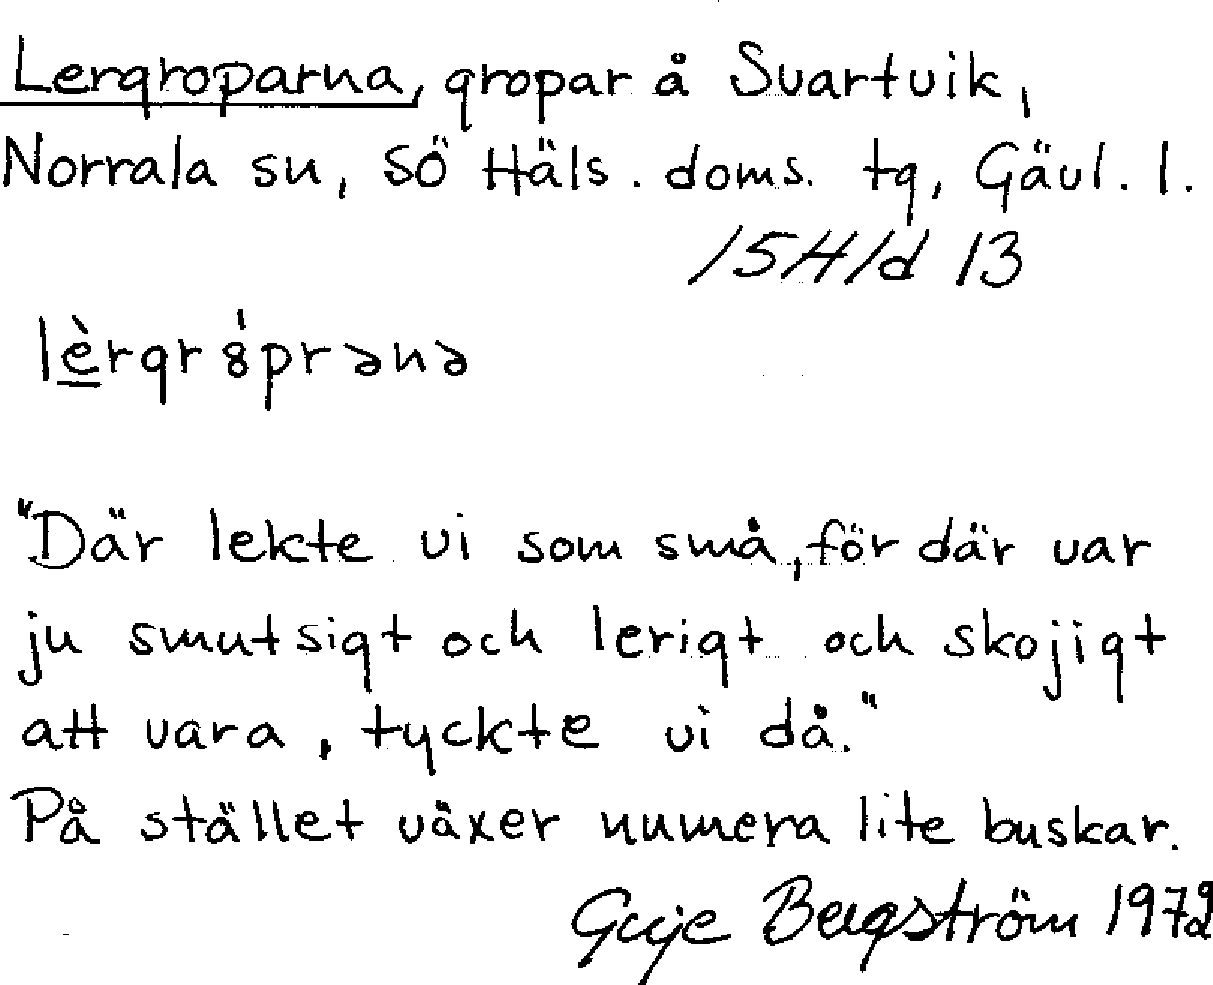 Lergroparna, gropar å Svartvik,
Norrala sn, SÖ Häls. doms. tg, Gävl. l.
15H1d 13
lèrgr8́prənə
"Där lekte vi som små, för där var
ju smutsigt och lerigt och skojigt
att vara, tyckte vi då."
På stället växer numera lite buskar.
Bergström